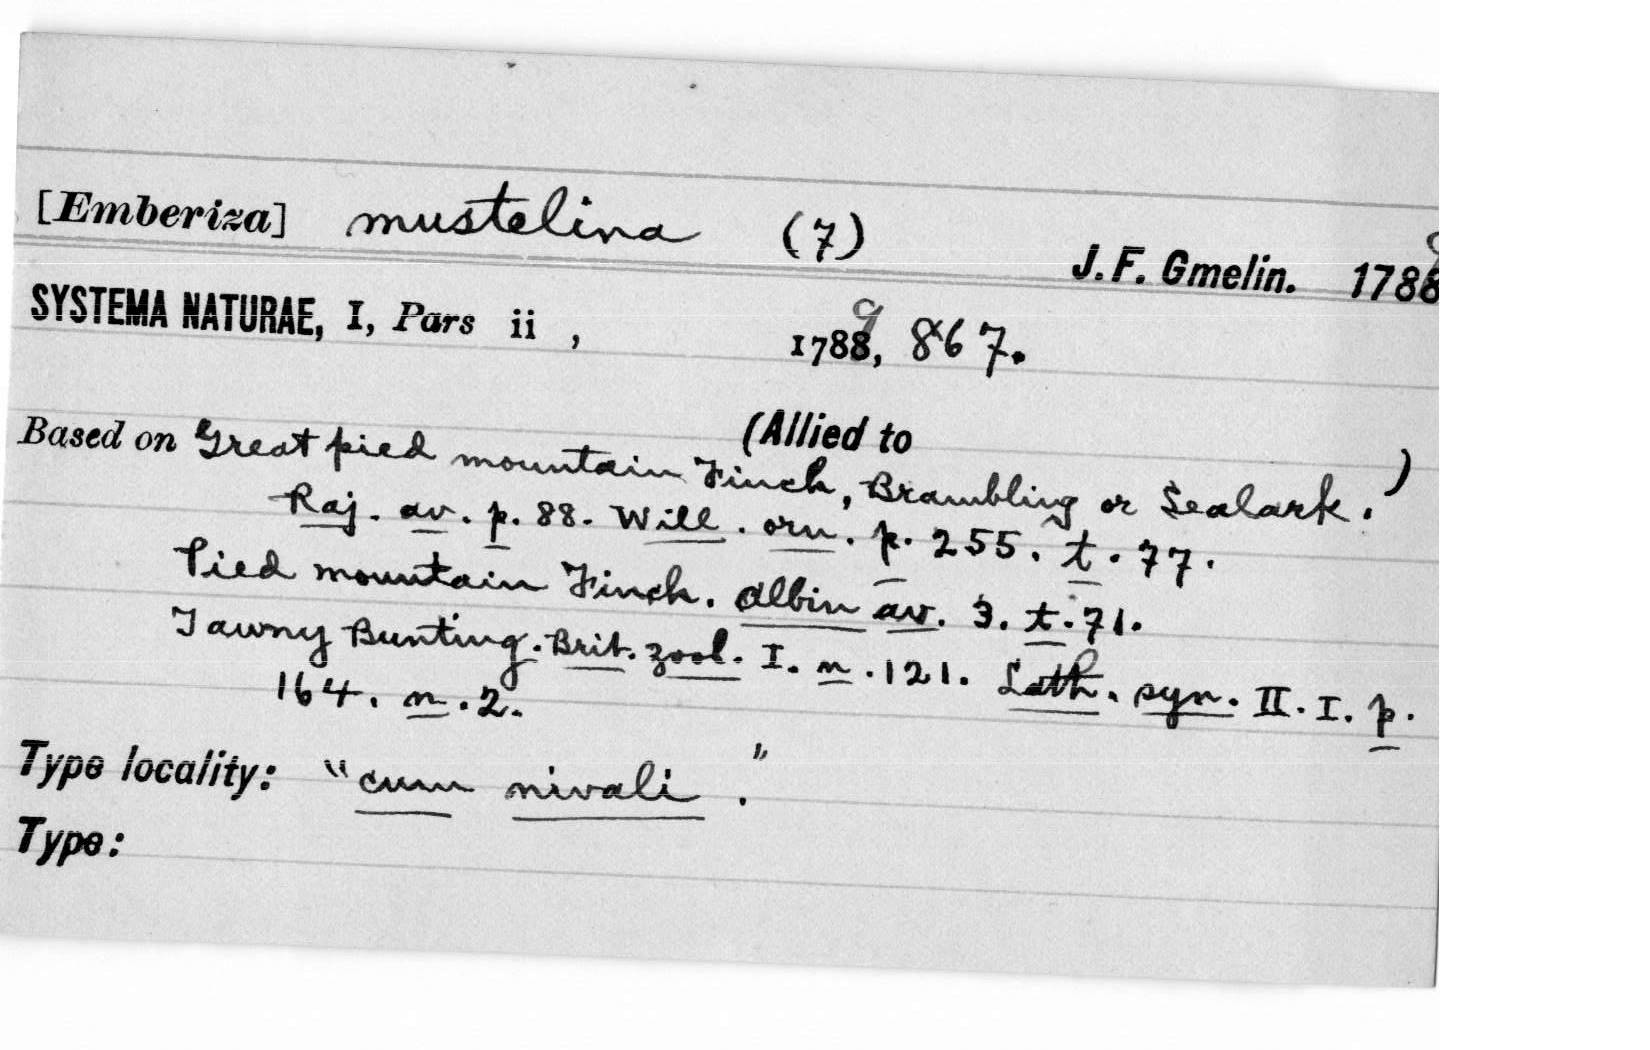 [Emberiza] mustelina (7)
J. F. Gmelin. 1788
9
SYSTEMA NATURAE, I, Pars ii , 1788, 867.
9
(Allied to )
Based on Great pied mountain Finch, Brambling or Sealark.
Raj. av. p. 88. Will. orn. p. 255. t. 77.
Pied mountain Finch. Albin av. 3. t. 71.
Tawny Bunting. Brit. zool. I. n. 121. Lath. syn. II. I. p.
164. n. 2.
Type locality: "cum nivali."
Type: